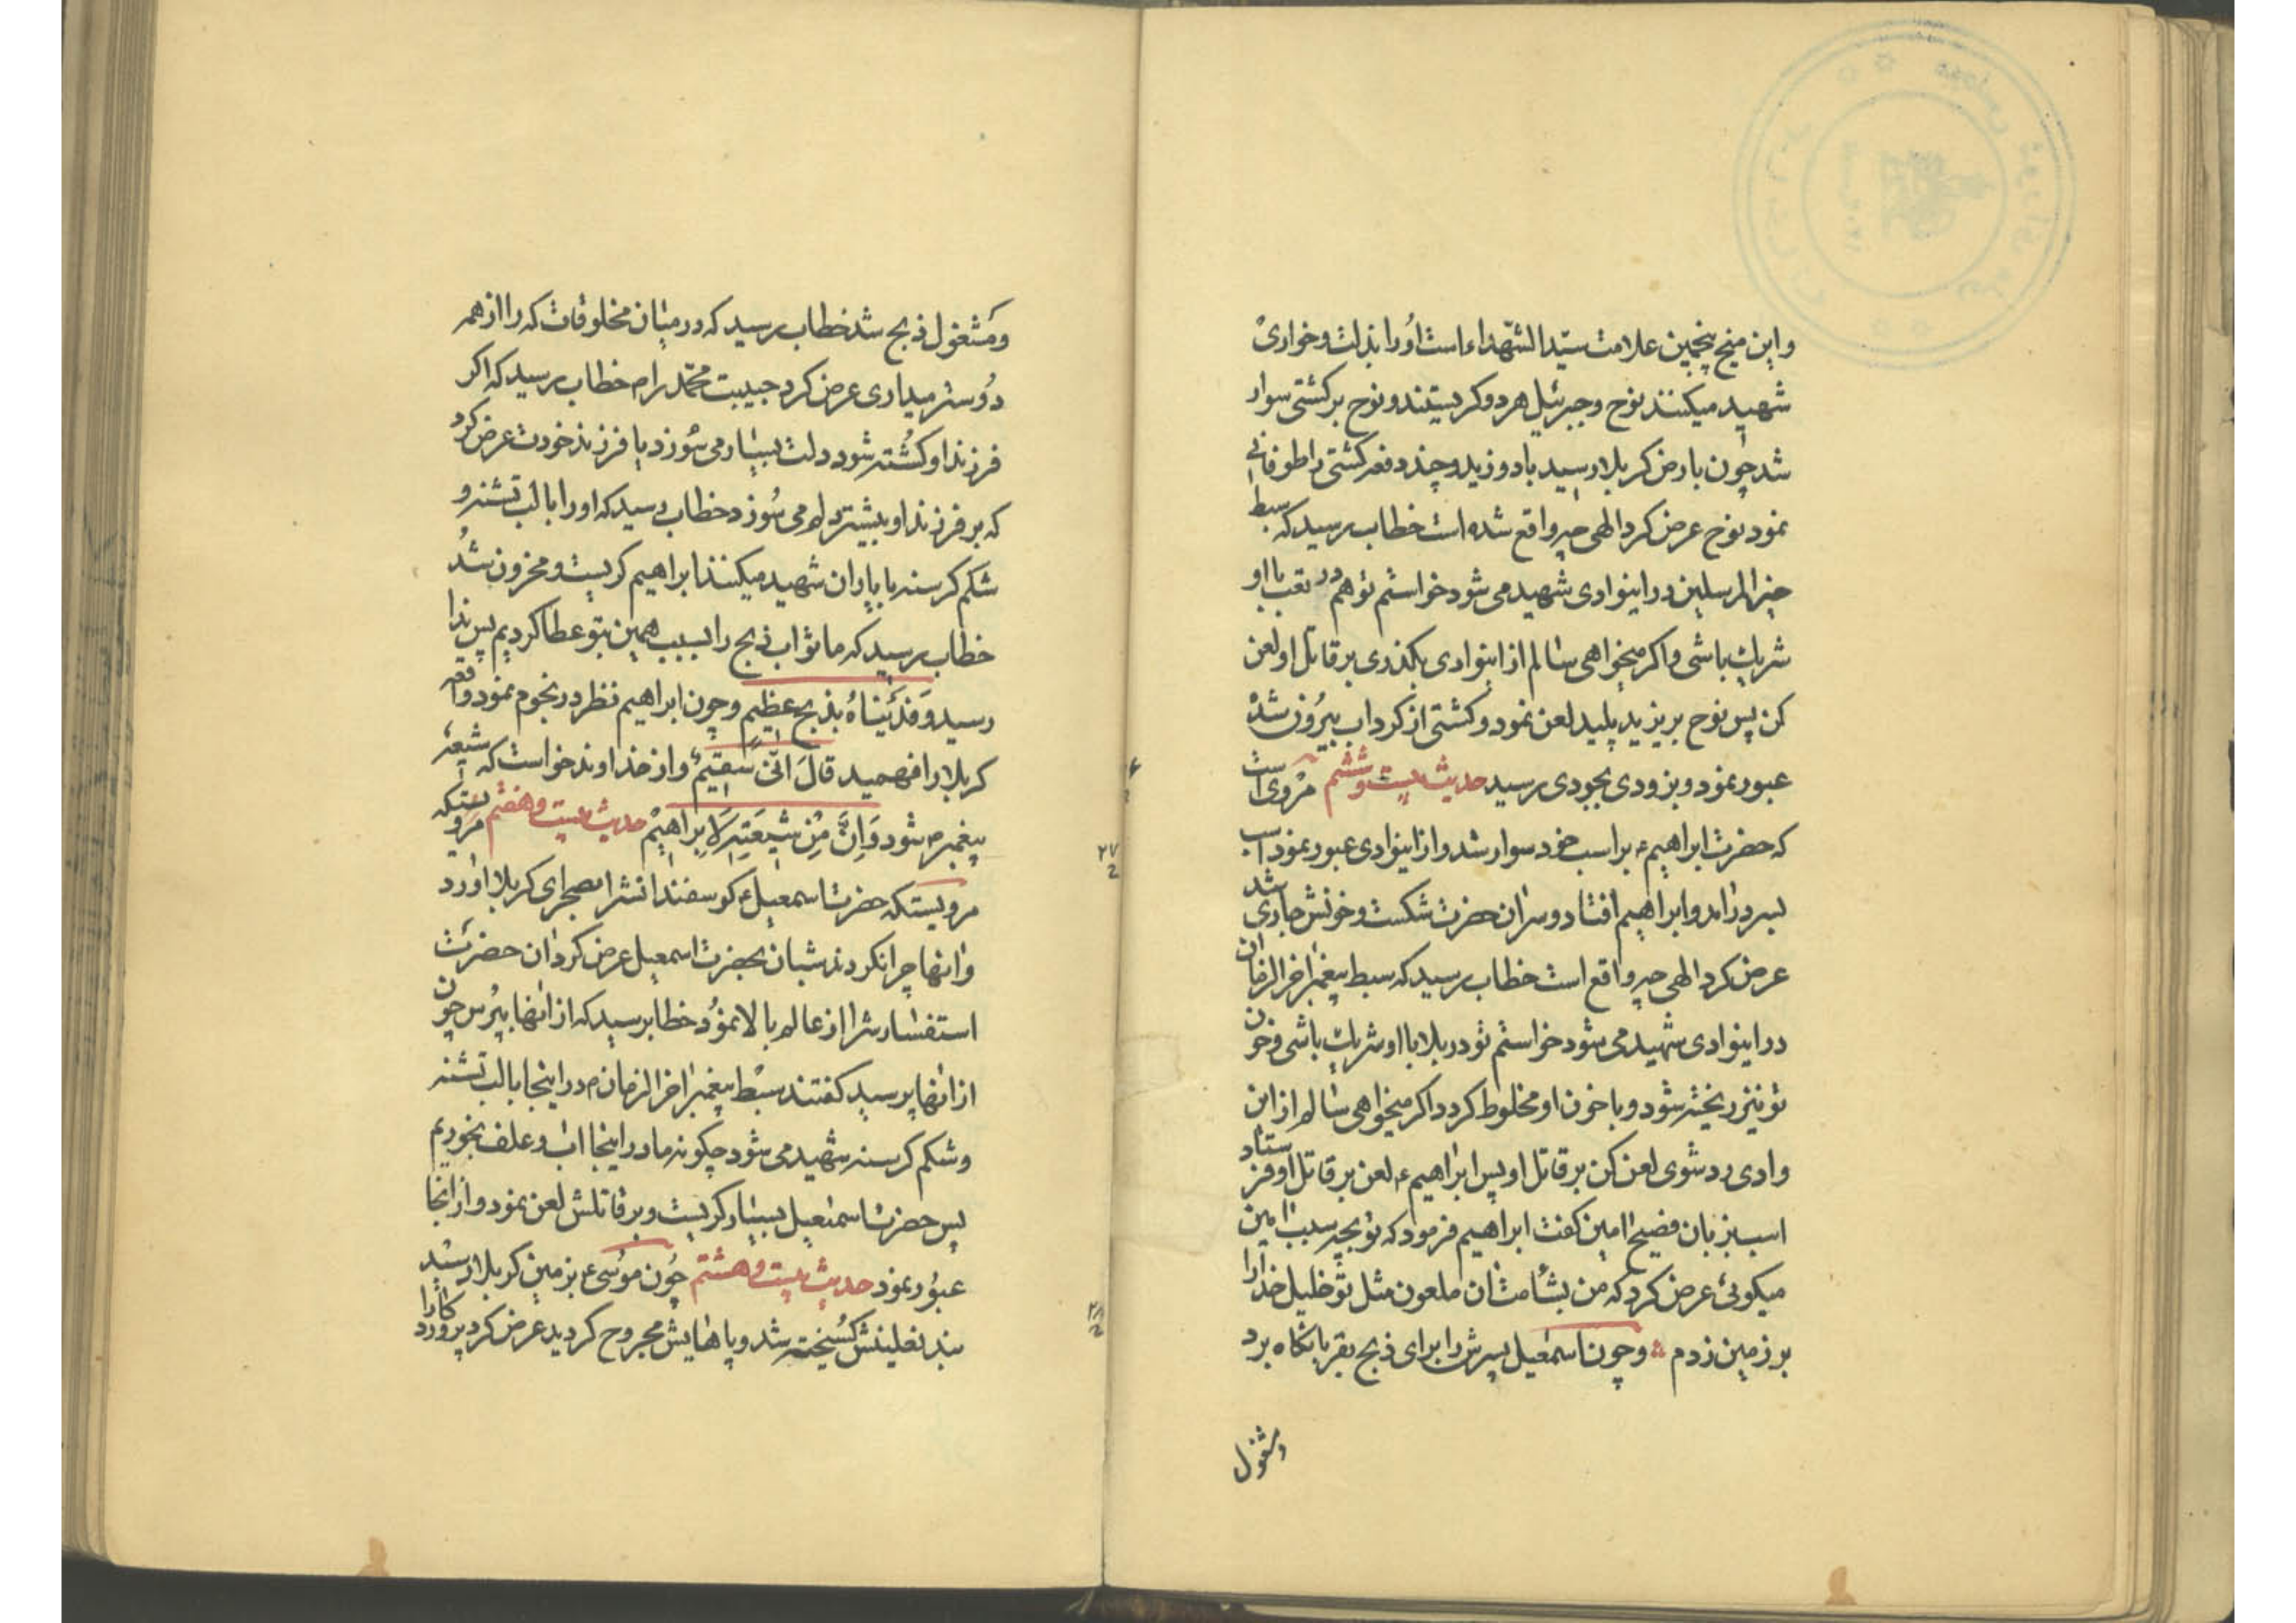 واین میخ پنجمین علامت سیّد الشّهداء است اورا بذلت وخواری
شهید میکنند نوح وجبرئیل هر دو کریستند ونوح بر کشتی سوار
شد چون بارض کربلا رسید باد وزید وچند دفعه کشتی را طوفانی
نمود نوح عرض کرد الهی چه واقع شده است خطاب رسید که سبط
خیر المرسلین در اینوادی شهید می شود خواستم تو هم در تعب با او
شریك باشی واکر میخواهی سالم از اینوادی بکذری بر قاتل او لعن
کن پس نوح بر یزید پلید لعن نمود وکشتی از کرداب بیرون شد
عبور نمود وبزودی بجودی رسید حدیث بیست وششم مروی است
که حضرت ابراهیم ع بر اسب خود سوار شد واز اینوادی عبور نمود اسب
بسر در امد وابراهیم افتاد وسر ان حضرت شکست وخونش جاری شد
عرض کرد الهی چه واقع است خطاب رسید که سبط پیغمبر اخر الزمان
در اینوادی شهید می شود خواستم تو در بلا با او شریك باشی وخون
تو نیز ریخته شود وبا خون او مخلوط کردد اکر میخواهی سالم از این
وادی رد شوی لعن کن بر قاتل او پس ابراهیم ع لعن بر قاتل او فرستاد
اسب بزبان فصیح امین کفت ابراهیم فرمود که تو بچه سبب امین
میکوئی عرض کرد که من بشأمت ان ملعون مثل تو خلیل خدا را
بر زمین زدم وچون اسمعیل پسرش را برای ذبح بقربانکاه برد
ومشغول
ومشغول ذبح شد خطاب رسید که در میان مخلوقات که را از همه
دوستر میداری عرض کرد حبیبت محمّد را م خطاب رسید که اکر
فرزند او کشته شود دلت بسیار می سوزد یا فرزند خودت عرض کرد
که بر فرزند او بیشتر دلم می سوزد خطاب رسید که او را با لب تشنه و
شکم کرسنه با یاران شهید میکنند ابراهیم کریست ومحزون شد
خطاب رسید که ما ثواب ذبح را بسبب همین بتو عطا کردیم پس ندا
رسید وَفَدَیْناهُ بذبح عظیم وچون ابراهیم نظر در نجوم نمود واقعه
کربلا را فهمید قالَ انّی سقیمٌ واز خداوند خواست که شیعه
پیغمبر ص شود وَاِنَّ مِنْ شیعَتِهِ لَاِبراهیْم حدیث بیست وهفتم مرویستکه
مرویستکه حضرت اسمعیل ع کوسفندانش را بصحرای کربلا اورد
وانها چرا نکردند شبان بحضرت اسمعیل عرض کرد ان حضرت
استفسارش را از عالم بالا نمود خطاب رسید که از انها بپرس چون
از انها پرسید کفتند سبط پیغمبر اخر الزمان م در اینجا با لب تشنه
وشکم کرسنه شهید می شود چکونه ما در اینجا اب وعلف بخوریم
پس حضرت اسمعیل بسیار کریست وبر قاتلش لعن نمود واز انجا
عبور نمود حدیث بیست وهشتم چون موسی ع بزمین کربلا رسید
بند نعلینش کسیخته شد وپاهایش مجروح کردید عرض کرد پرورد کارا